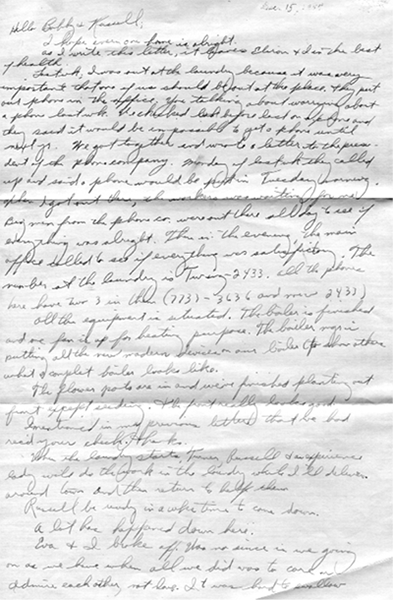 Dec. 15, 194
Hello Bobby & Russell,
I hope everyone home is alright.
As I write this letter, it leaves Chron & I in the best
of health.
Last wk, I was out at the laundry because it was very
important that one of us should be out at the place. They put
out phone in the office. You talking about worrying about
a phone last wk. We checked last before last on a phone and
they said it would be impossible to get a phone until
next yr. We got together and wrote a letter to the presi-
dent of the phone company. Monday of last wk they called
up and said a phone would be put in Tuesday morning.
When I got out there, workers was waiting for me.
Big men from the phone co. were out there all day to see if
everything was alright. Then in the evening the main
office called to see if everything was satisfactory. The
number at the laundry is -2433. All the phones
here have two 3 in them (773)-3636 and now 2433)
All the equipment is situated. The boiler is finished
and we fire it up for heating purpose. The boiler mgr is
putting all the new modern devices on our boiler to show others
what a complete boiler looks like.
The flower pots are in and we've finished planting out
front except seeding. The front really looks good.
I mentioned in my previous letters that he had
read your check. Thanks.
When the laundry starts, Russell & experience
lady will do the work in the laundry while I'll deliver
around town and then return to help them.
Russell be ready in a whites time to come down.
A lot has happened down here.
Eva & I broke off. Was no sense in we going
on as we have when all we did was to care and
admire each other, not love. It was hard to swallow